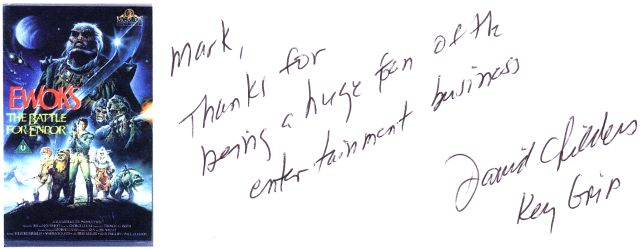 EWOKS
THE BATTLE
FOR ENDOR
U
Mark,
Thanks for
being a huge fan of th
entertainment business
David Childers
Key Grip